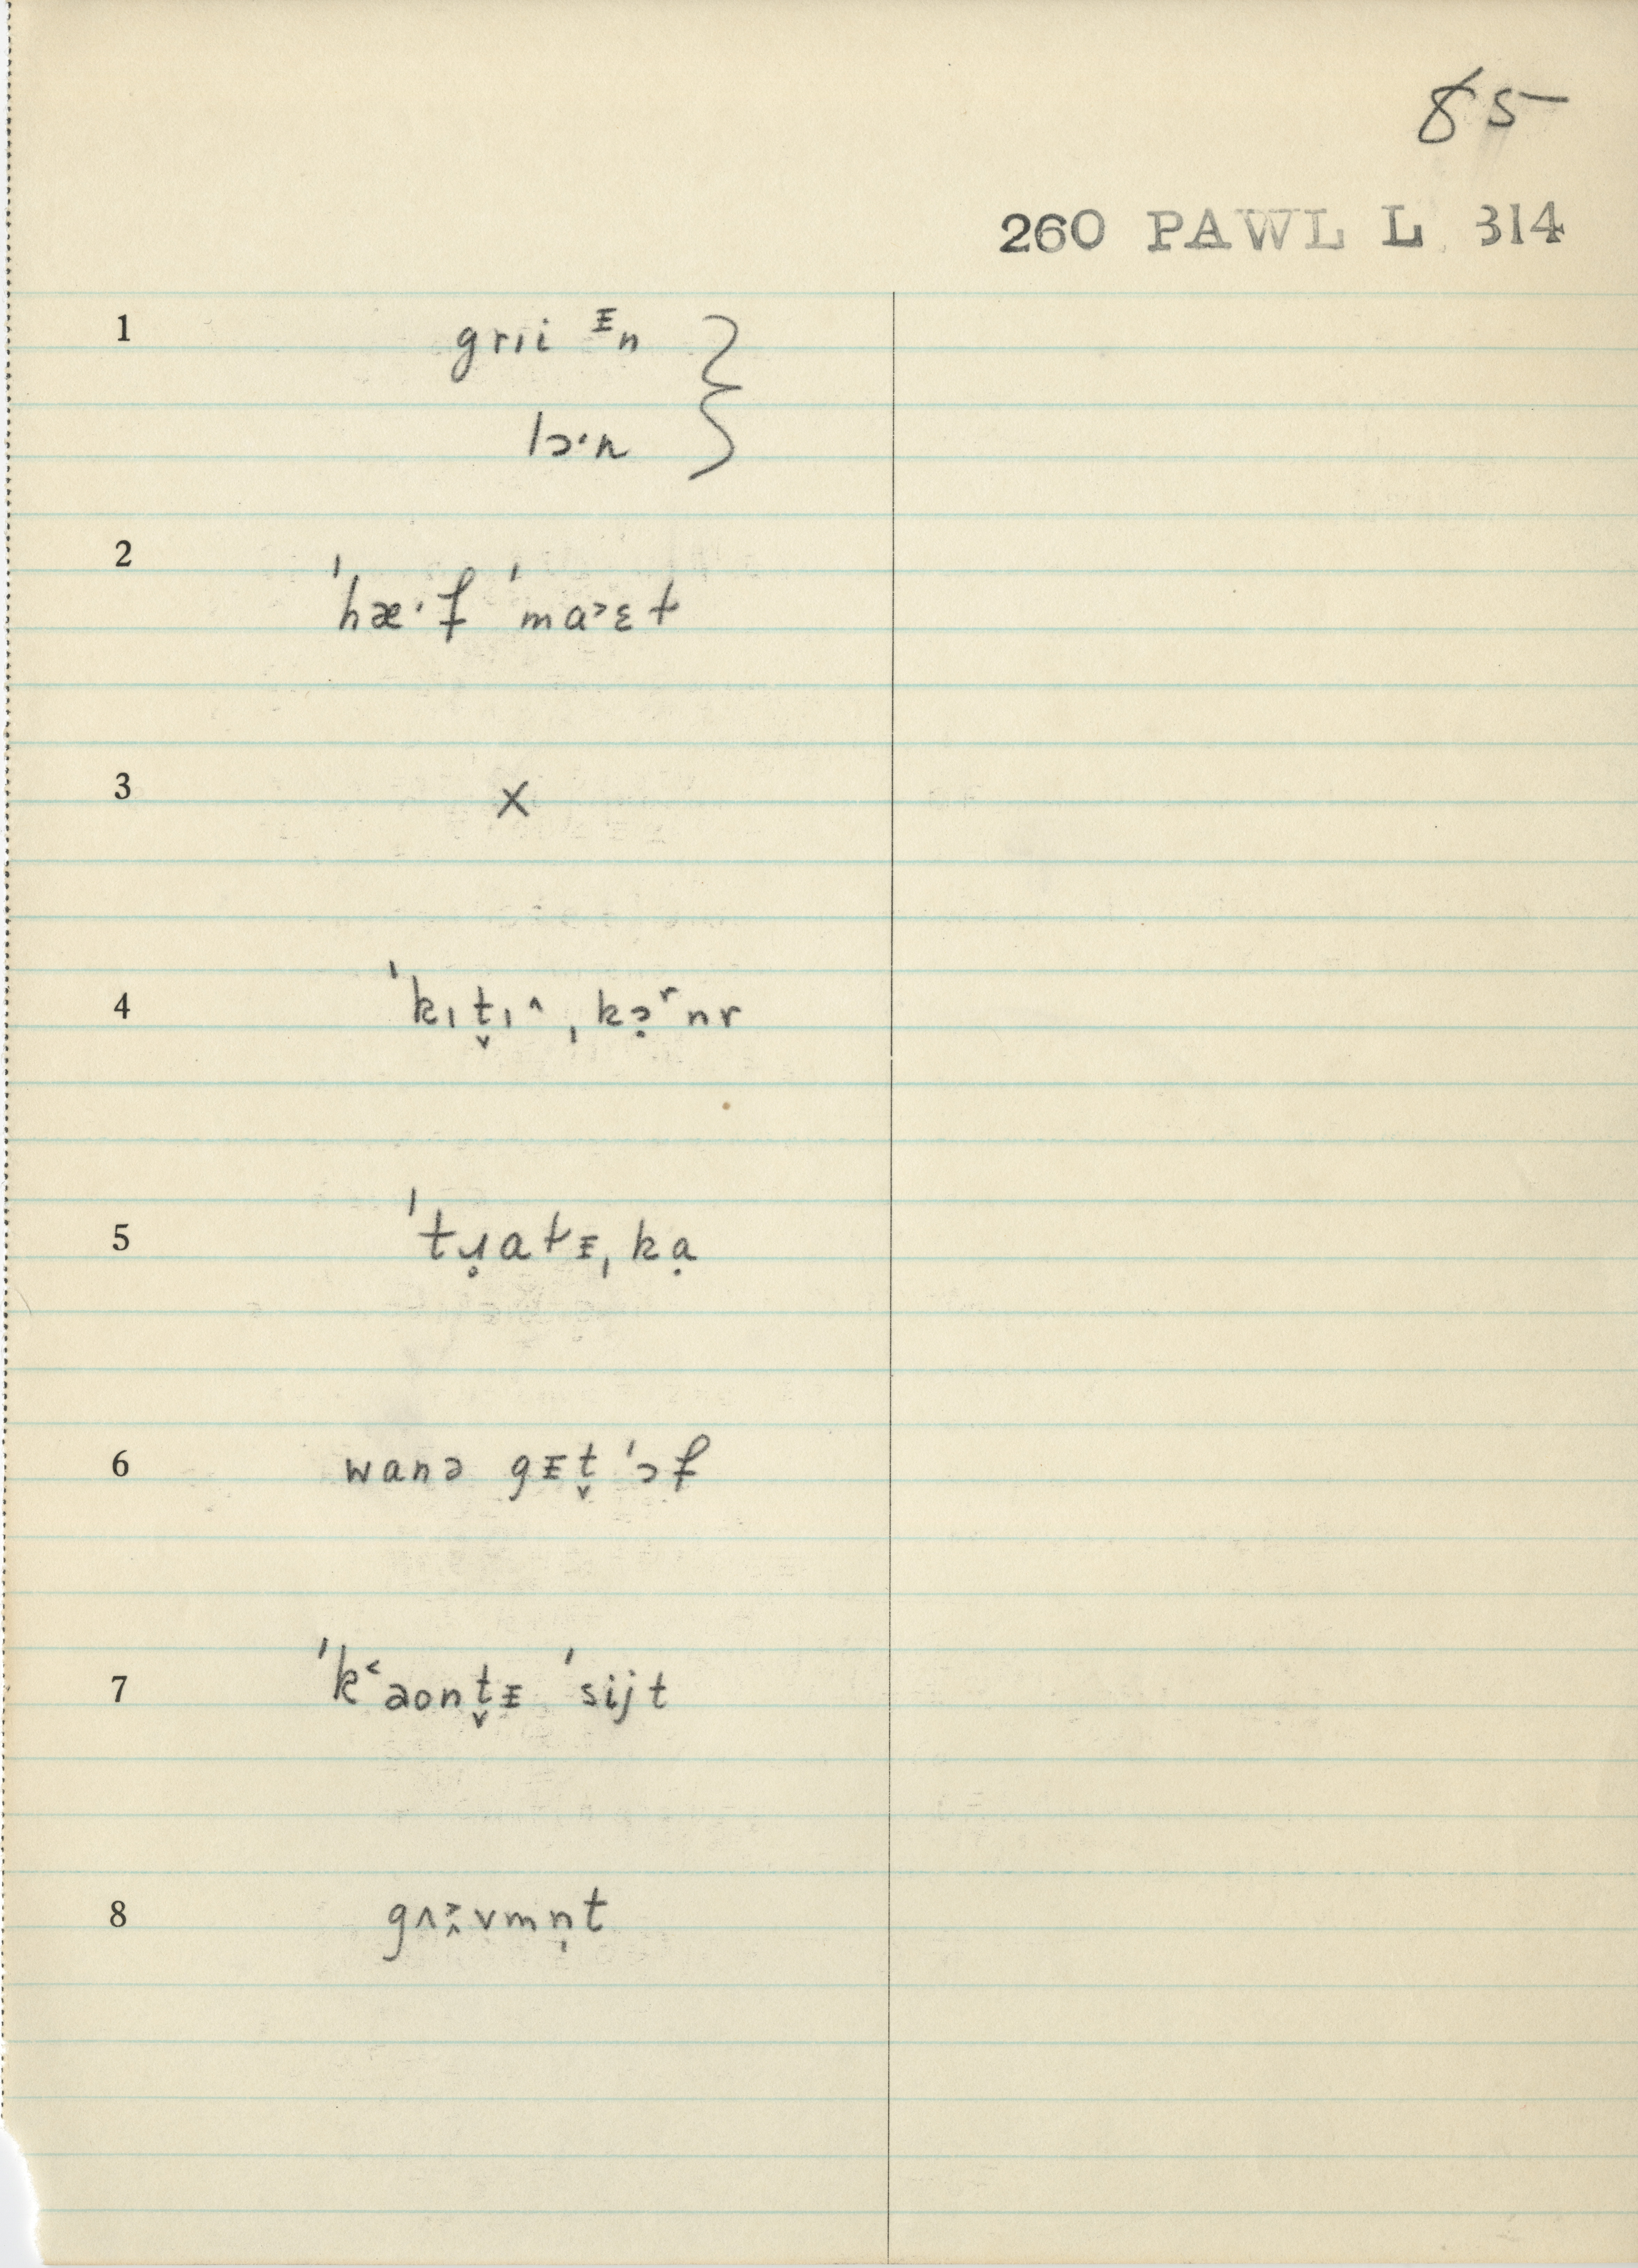 85
260 PAWL L 314
1 grıi ᵻn }
lɔ·n
2 ˈhæ·f ˈma˃ɛt
3 X
4 ˈkɪt̬ɪ^ˌkɔ̣ʳnr
5 ˈtɹ̥atᵻˌkạ
6 wanə gᵻt̬ ˈɔf
7 ˈk˂aont̬ᵻ ˈsijt
8 gʌ˃̭vmn̩t